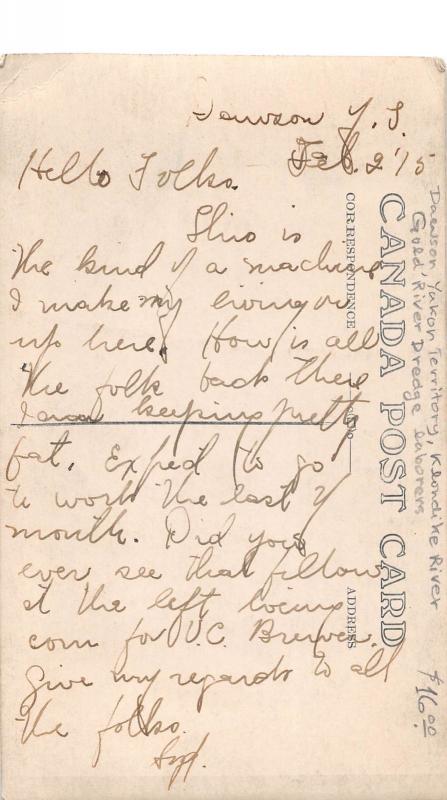 Dawson Y. T.
Feb. 2 '15
Hello Folks.
This is
the kind of a machine
I make my living on
up here. How is all
the folk back there
I am keeping pretty
fat. Exped to go
to work the last of
month. Did you
ever see that fellow
at the left
corn for V.C. Brewer.
Give my regards to all
the folks.
CANADA POST CARD
CORRESPONDENCE
ADDRESS
Dawson, Yukon Territory, Klondike River
Gold River Dredge Laborers
$16.00